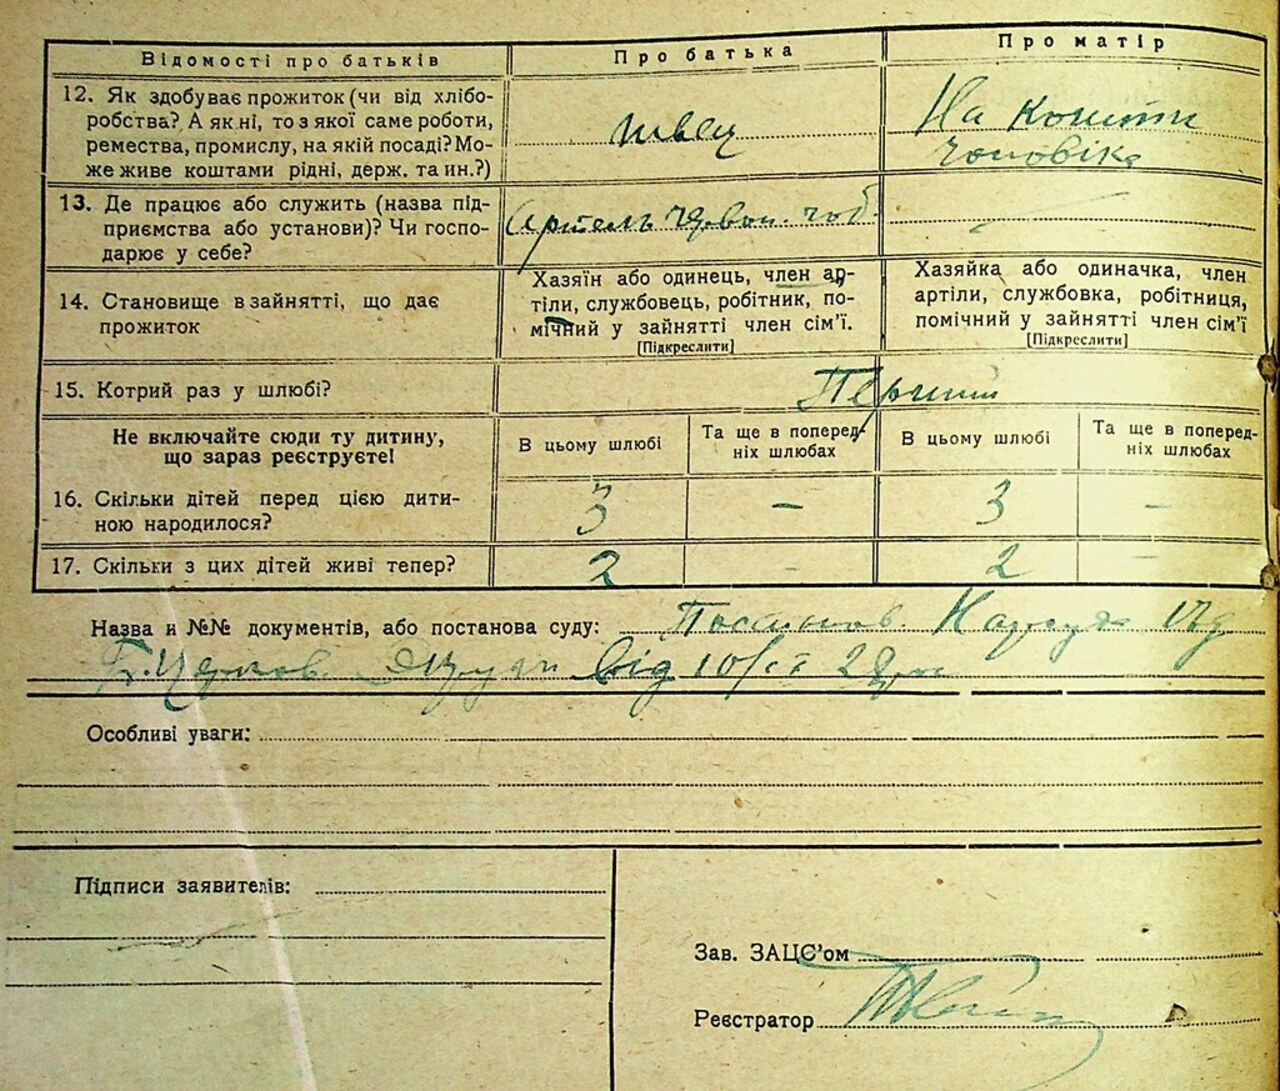 Відомості про батьків
Про батька
Про матір
12. Як здобуває прожиток (чи від хлібо-
робства? А як ні, то з якої саме роботи,
ремества, промислу, на якій посаді? Мо-
же живе коштами рідні, держ. та ин.?)
швец
На кошти
чоловіка
13. Де працює або служить (назва під-
приємства або установи)? Чи госпо-
дарює у себе?
Артель Червон. чоб.
—
14. Становище в зайнятті, що дає
прожиток
Хазяїн або одинець, член ар-
тіли, службовець, робітник, по-
мічний у зайнятті член сім'ї.
[Підкреслити]
Хазяйка або одиначка, член
артіли, службовка, робітниця,
помічний у зайнятті член сім'ї
[Підкреслити]
15. Котрий раз у шлюбі?
Перший
Не включайте сюди ту дитину,
що зараз реєструєте!
В цьому шлюбі
Та ще в поперед-
ніх шлюбах
В цьому шлюбі
Та ще в поперед-
ніх шлюбах
16. Скільки дітей перед цією дити-
ною народилося?
3 — 3 —
17. Скільки з цих дітей живі тепер?
2 - 2 —
Назва и №№ документів, або постанова суду: Постанов.
Б. Церков. від
Особливі уваги:
Підписи заявителів:
Зав. ЗАЦС'ом
Реєстратор